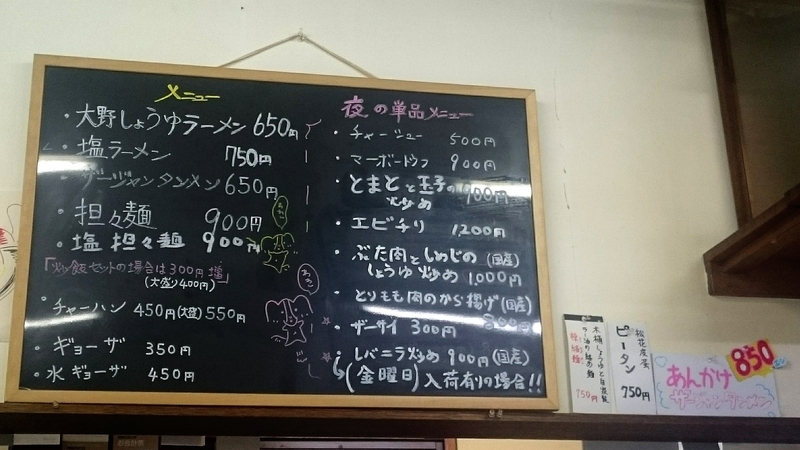 メニュー
・大野しょうゆラーメン 650円
・塩ラーメン 750円
・ザージャンタンメン 650円
・担々麺 900円
・塩担々麺 900円
「炒飯セットの場合は300円増」
(大盛り400円)
チャーハン 450円(大盛)550円
・ギョーザ 350円
・水ギョーザ 450円
夜の単品メニュー
・チャーシュー 500円
・マーボードウフ 900円
・とまとと玉子の炒め 900円
・エビチリ 1,200円
・ぶた肉としめじの(国産)
しょうゆ炒め 1,000円
・とりもも肉のから揚げ(国産)
・ザーサイ 300円
・レバニラ炒め 900円(国産)
(金曜日)入荷有りの場合!!
750円
松花皮蛋
ピータン
750円
あんかけ
850